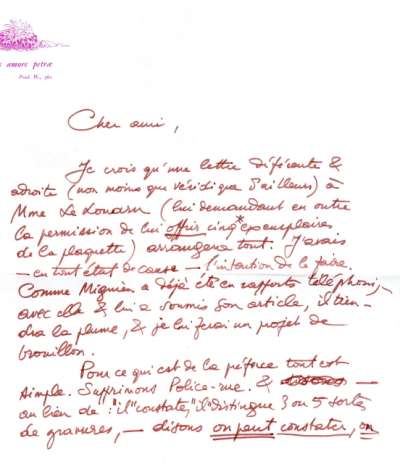 amore petræ
Cher ami,
Je crois qu'une lettre déférente &
adroite (non moins que véridique d'ailleurs) à
Mme Le (lui demandant en outre
la permission de lui offrir cinq* exemplaires
de la plaquette) arrangera tout. J'avais
— en tout état de cause — l'intention de le faire.
Comme a déjà été en rapports téléphoni-
avec elle & lui a soumis son article, il tien-
dra la plume, & je lui ferai un projet de
brouillon.
Pour ce qui est de la préface tout est
simple. Supprimons Police-me. & —
au lieu de : "il" constate, "il" distingue 3 ou 5 sortes
de gravures, — disons on peut constater, on